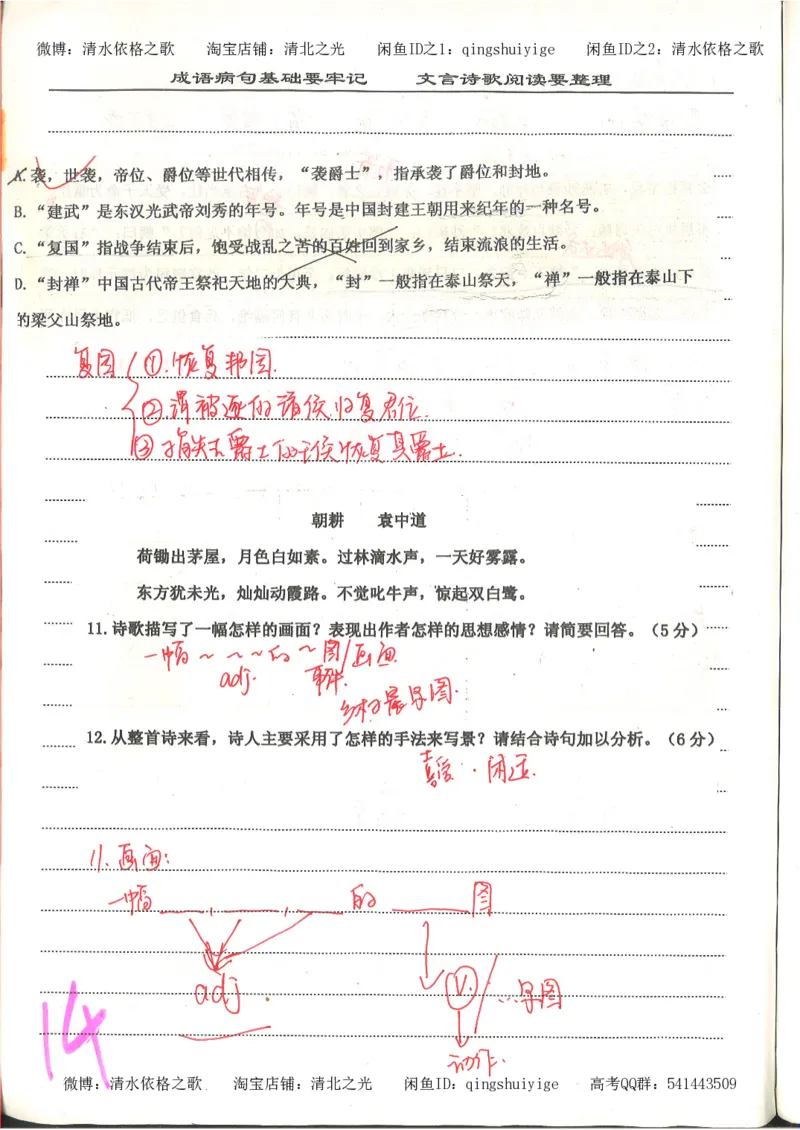 微博：清水依格之歌 淘宝店铺：清北之光 闲鱼ID之1：qingshuiyige 闲鱼ID之2：清水依格之歌
成语病句基础要牢记 文言诗歌阅读要整理
A.袭，世袭，帝位、爵位等世代相传，“袭爵士”，指承袭了爵位和封地。
B.“建武”是东汉光武帝刘秀的年号。年号是中国封建王朝用来纪年的一种名号。
C.“复国”指战争结束后，饱受战乱之苦的百姓回到家乡，结束流浪的生活。
D.“封禅”中国古代帝王祭祀天地的大典，“封”一般指在泰山祭天，“禅”一般指在泰山下
的梁父山祭地。
复国 ①.恢复邦国.
②谓被逐的诸侯归复君位.
③指失去爵土的诸侯恢复其爵土.
朝耕 袁中道
荷锄出茅屋，月色白如素。过林滴水声，一天好雾露。
东方犹未光，灿灿动霞路。不觉叱牛声，惊起双白鹭。
11.诗歌描写了一幅怎样的画面？表现出作者怎样的思想感情？请简要回答。（5分）
一幅～～～的～图/画面
adj. 事件.
乡村晨早图.
12.从整首诗来看，诗人主要采用了怎样的手法来写景？请结合诗句加以分析。（6分）
喜爱.闲适.
11.画面:
一幅 的 图
adj
V. 早图
动作.
14
微博：清水依格之歌 淘宝店铺：清北之光 闲鱼ID：qingshuiyige 高考QQ群：541443509